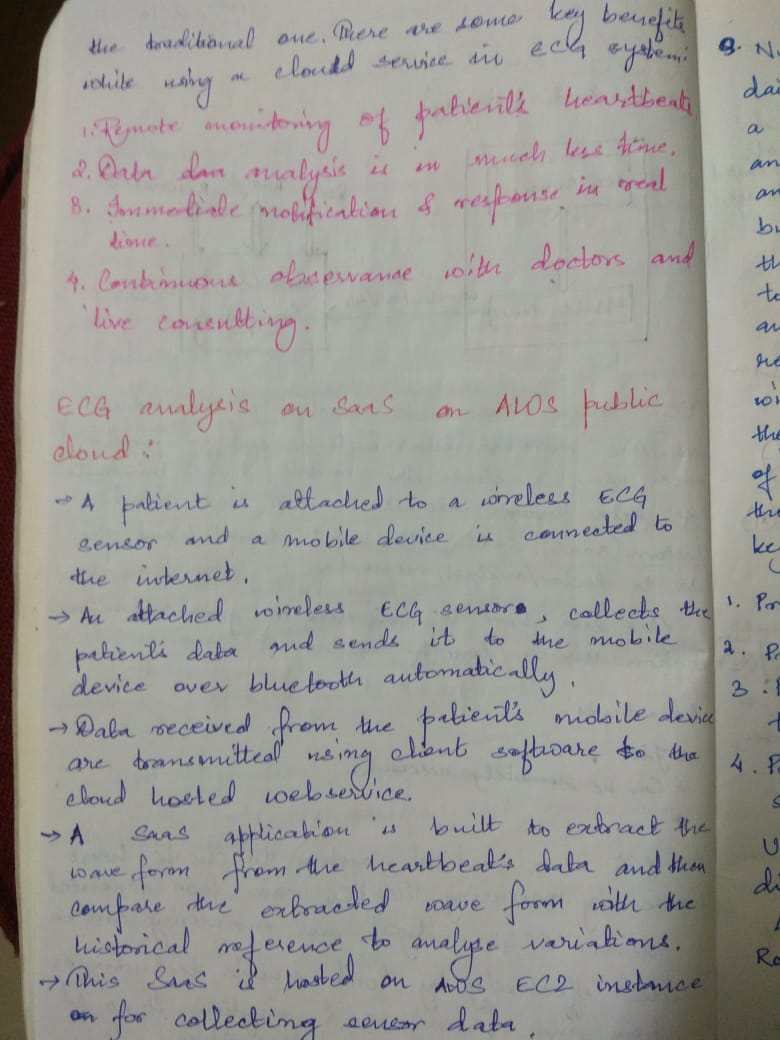 the traditional one. There are some key benefits
while using a cloud service in ECG system:
1. Remote monitoring of patient's heartbeats
2. Data dan analysis is in much less time.
3. Immediate notification & response in real
time.
4. Continuous observance with doctors and
live consulting.
ECG analysis on SaaS on AWS public
cloud:
→ A patient is attached to a wireless ECG
sensor and a mobile device is connected to
the internet.
→ An attached wireless ECG sensors, collects the
patient's data and sends it to the mobile
device over bluetooth automatically.
→ Data received from the patient's mobile device
are transmitted using client software to the
cloud hosted webservice.
→ A SaaS application is built to extract the
wave form from the heartbeat's data and then
compare the extracted wave form with the
historical reference to analyse variations.
→ This SaaS is hosted on AWS EC2 instance
for collecting sensor data.
9. N
dai
a
an
an
bu
th
to
au
re
wi
the
of
the
ke
1. Por
2. P
3.
4. P
s
U
di
Ro